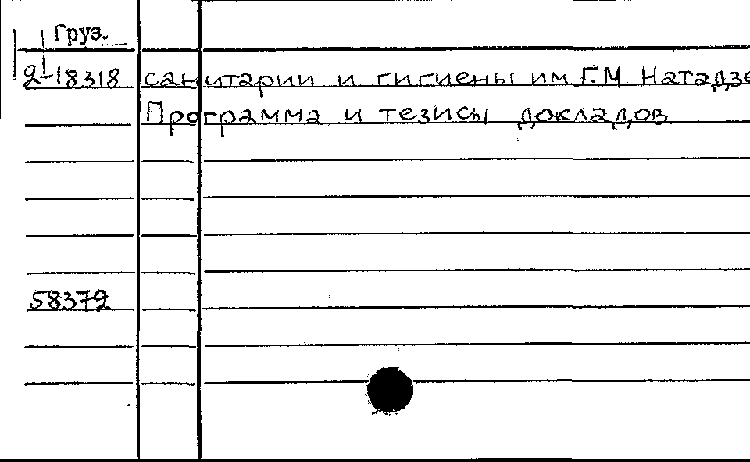 Груз.
2-18318 санитарии и гигиены им.Г.М Натадзе
Программа и тезисы докладов
58372